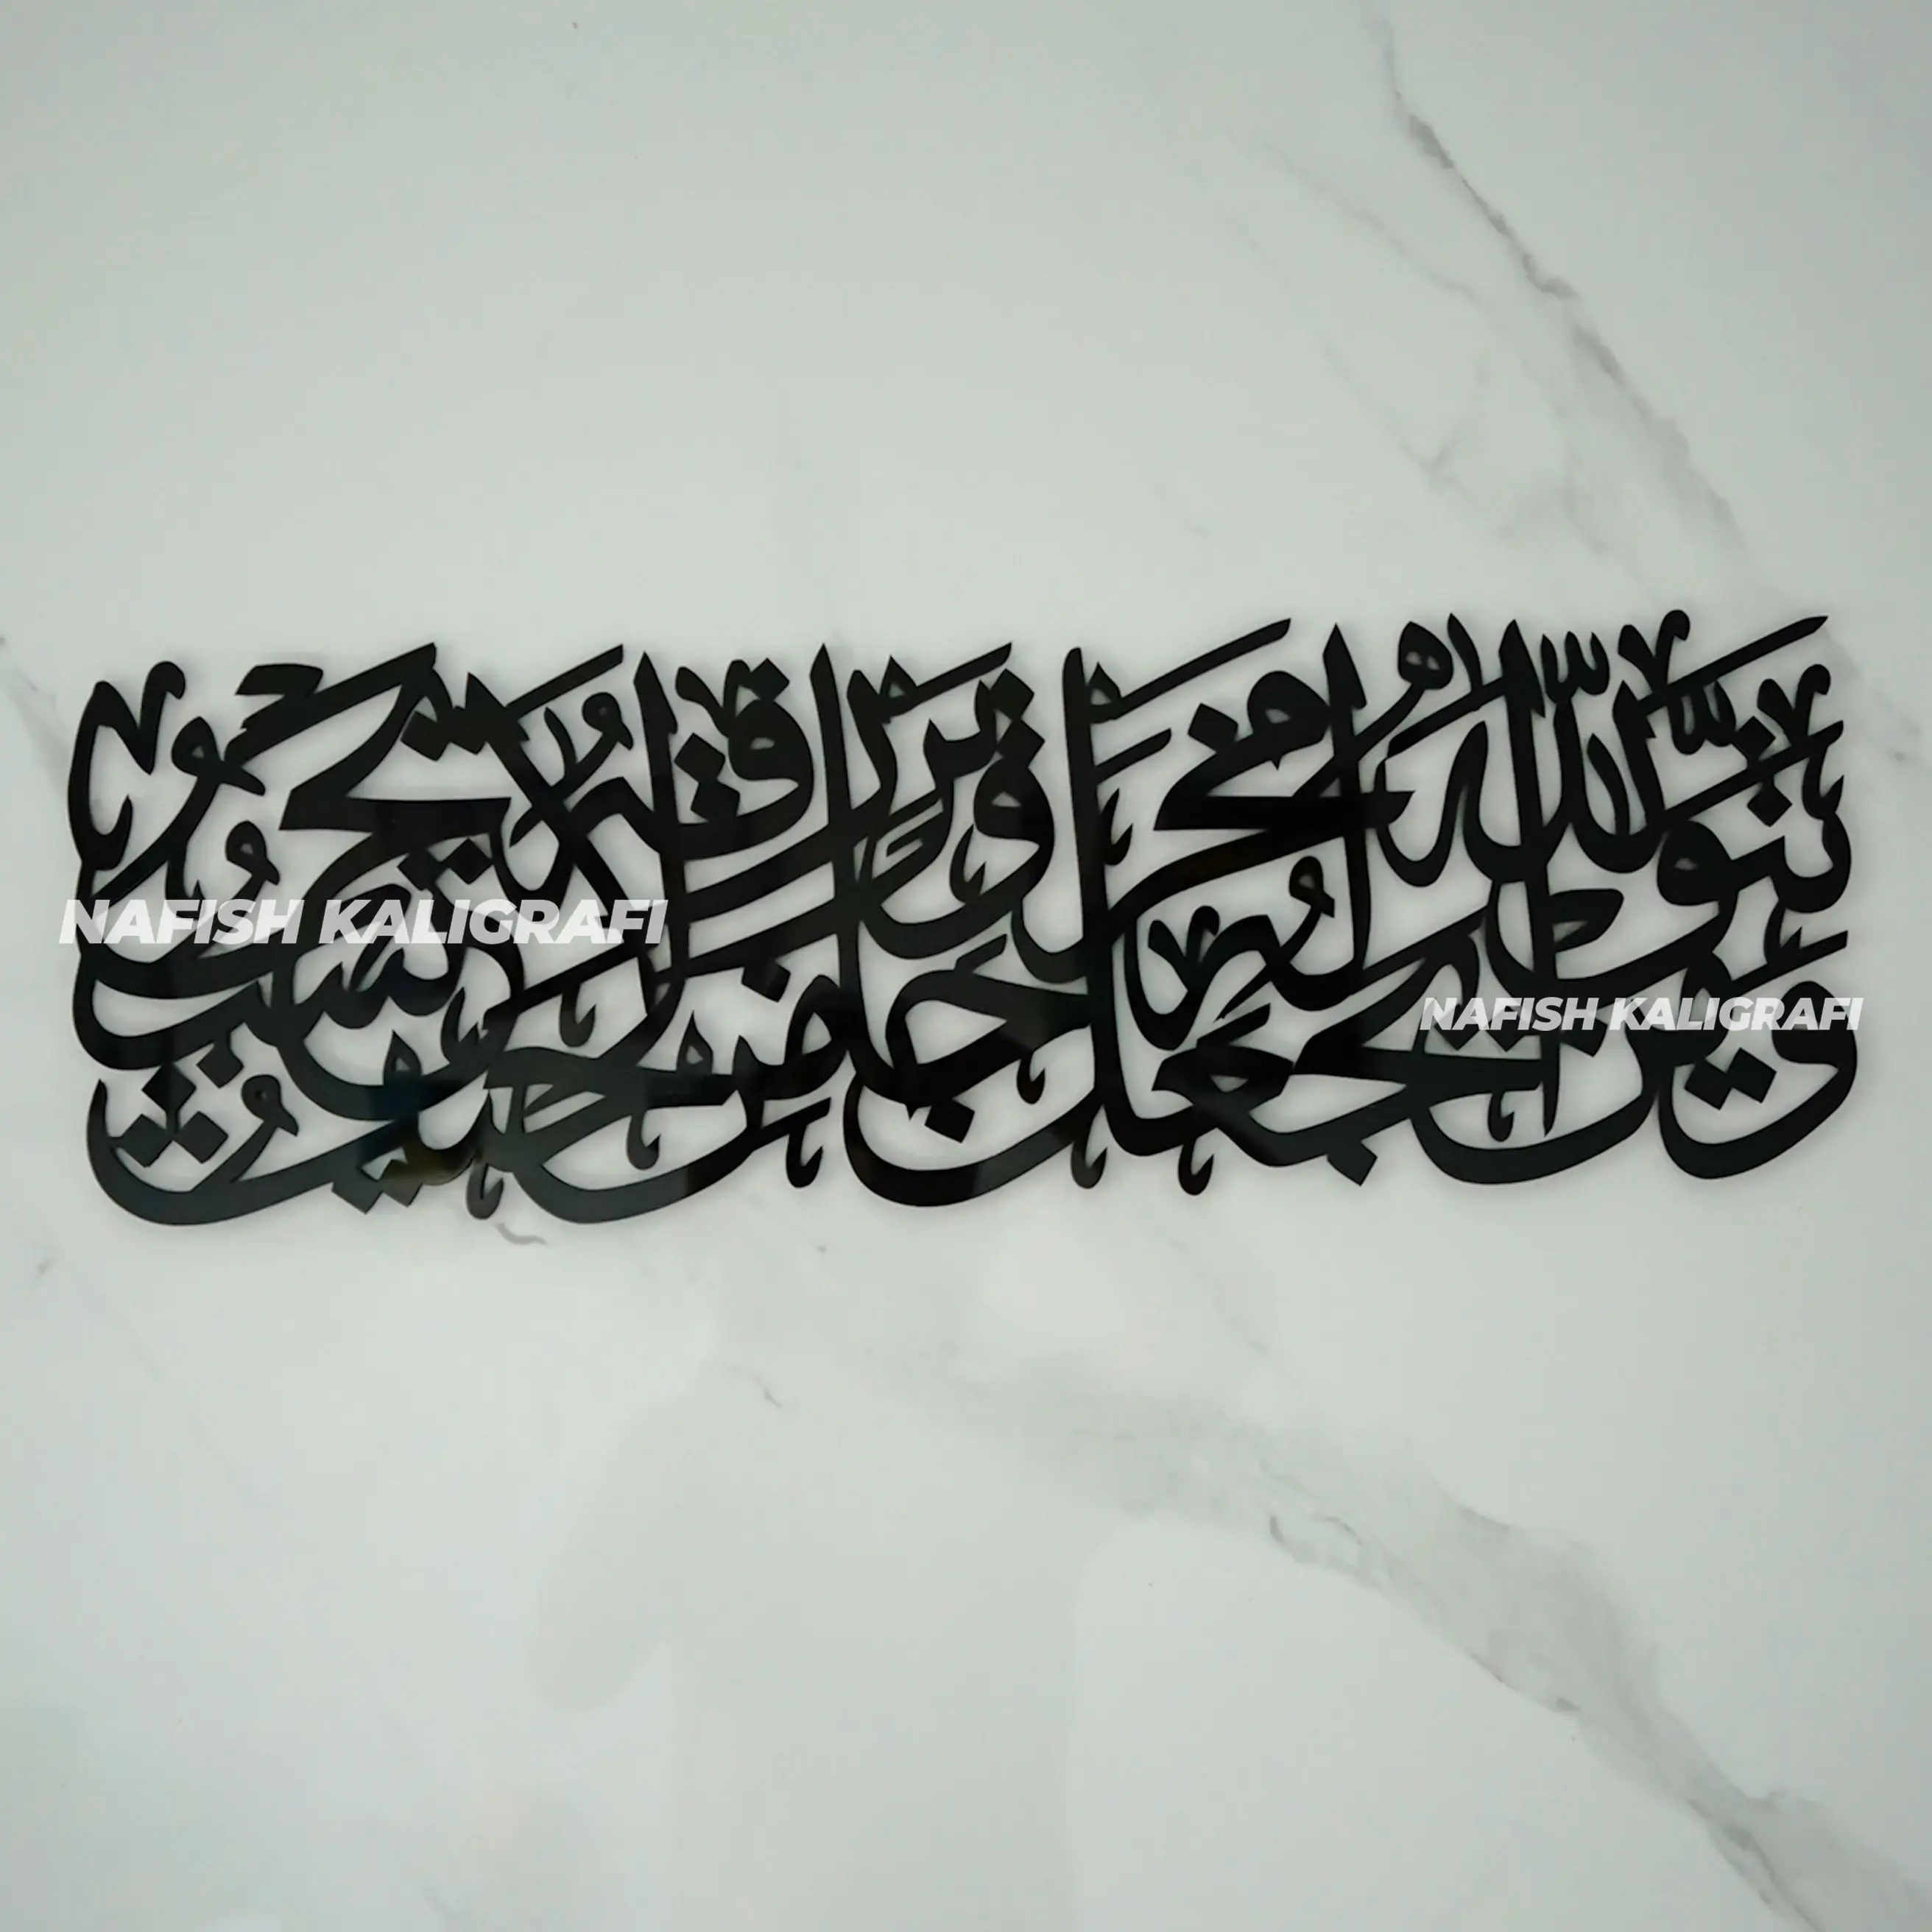 وَمَنْ يَتَّقِ اللَّهَ يَجْعَلْ لَهُ مَخْرَجًا وَيَرْزُقْهُ مِنْ حَيْثُ لَا يَحْتَسِبُ
NAFISH KALIGRAFI
NAFISH KALIGRAFI